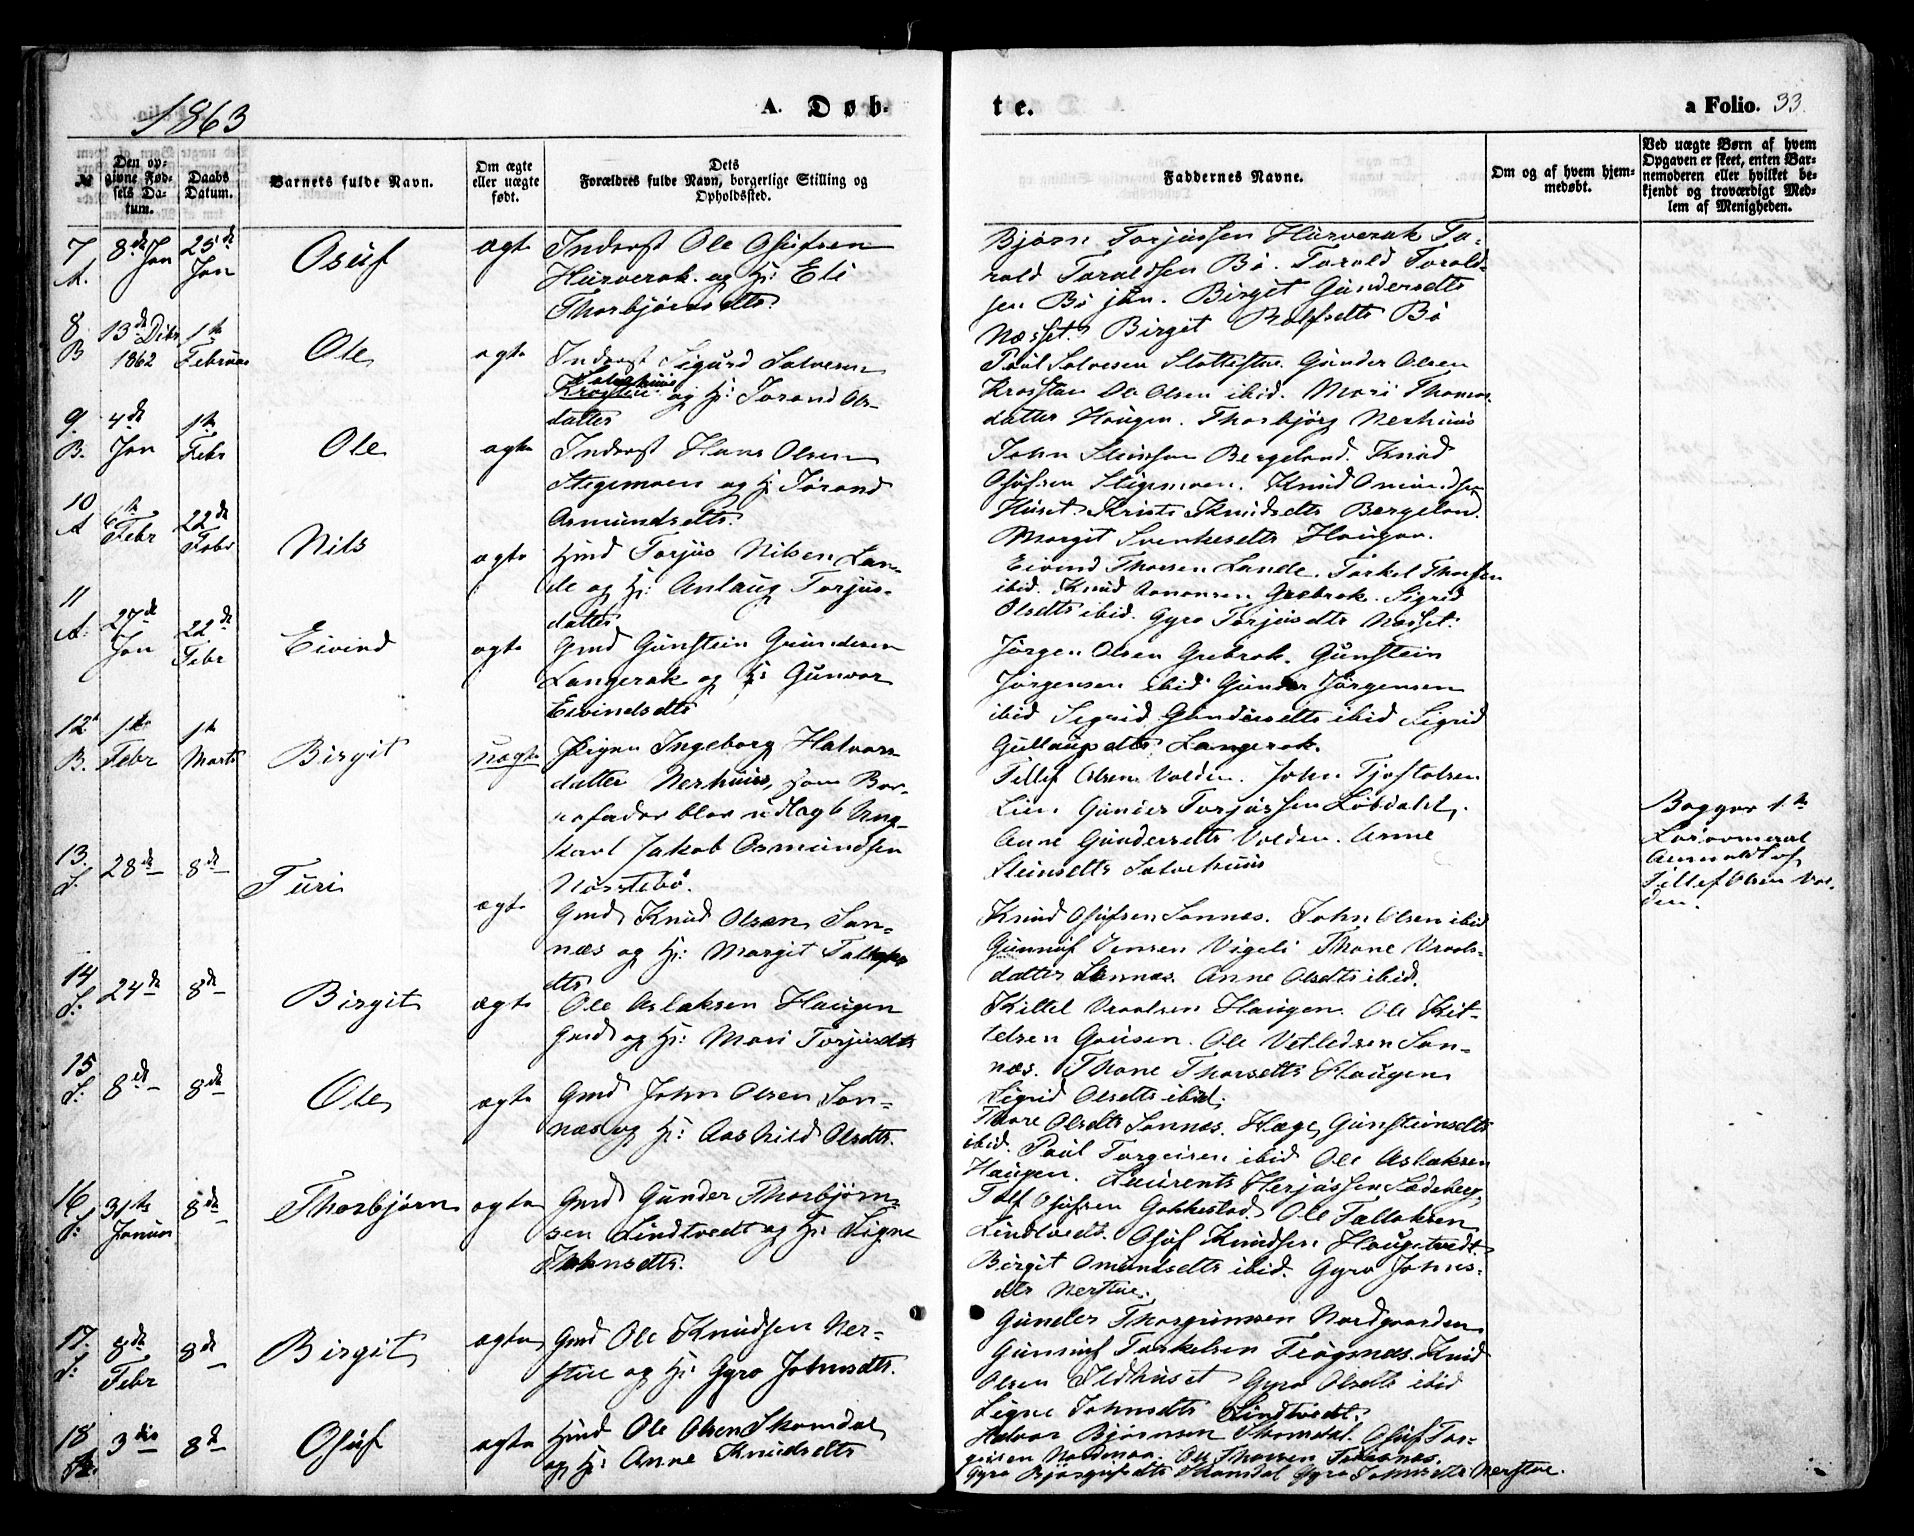 1863
A. Døb-
te.
a Folio. 33.
№
Den op-
givne Fød-
sels Da-
tum.
Daabs
Datum.
Barnets fulde Navn.
Om ægte
eller uægte
født.
Dets
Forældres fulde Navn, borgerlige Stilling og
Opholdssted.
Faddernes Navne.
Om og af hvem hjem-
medøbt.
Ved uægte Børn af hvem
Opgaven er skeet, enten Bar-
nemoderen eller hvilket be-
kjendt og troværdigt Med-
lem af Menigheden.
7
A.
8de Jan
25de
Jan
Osuf
ægte
Inderst Ole Osufsen
Hurverak og H: Eli
Thorbjørnsdttr.
Bjørn Torjussen Hurverak Ta-
rald Taraldsen Bö. Tarald Tarald-
sen Bö jun. Birgit Gundersdttr
Næsset. Birgit Rolfsdttr Bö
8
B
13de Dcbr
1862
1ste
Februar
Ole
ægte
Inderst Sigurd Salvesen
og H: Torand Ols-
datter
Poul Salvesen Slottestøe Gunder Olsen
Ole Olsen ibid. Mari Thomas-
datter Haugen. Thorbjörg Nerhuus
9.
B.
4de
Jan
1ste
Febr
Ole
ægte
Inderst Hans Olsen
Stegemoen og H: Torand
Asmundsdttr.
John Steinsen Bergeland. Knud
Osufsen Stigemoen. Knud Omundsen
Huset. Knudsdttr Bergeland.
Margit Svenkesdttr Haugen.
10
A
6te
Febr
22de
Febr
Nils
ægte
Huusmd Torjus Nilsen Lan-
de og H: Anlaug Torjus-
datter
Eivind Thorsen Lande. Torkel Thorsen
ibid. Knud Aanonsen Grebrok. Sigrid
Olsdttr ibid. Gyro Torjusdttr Næsset.
11
A.
27de
Jan
22de
Febr
Eivind
ægte
Gmd Gunstein Gundersen
Langerak og H: Gunvor
Eivindsdttr
Jörgen Olsen Grebrok. Gunstein
Jörgensen ibid Gunder Jörgensen
ibid Sigrid Gundersdttr ibid Sigrid
Gullaugsdttr Langerak.
12
B.
1ste
Febr
1ste
Marts
Birgit
uægte
Pigen Ingeborg Halvors-
datter Nerhuus, som Bar-
nefader blev udlagt Ung-
karl Jakob Osmundsen
Nörstebö.
Tellef Olsen Volden. John Tjostolsen
Lien Gunder Torjussen Lövdahl.
Anne Gundersdttr Volden. Anne
Steinsdttr Salvehuus
Begges 1ste
Leiermaal
Anmeldt af
Tellef Olsen Vol-
den.
13.
S.
28de
8de
Turi
ægte
Gmd Knud Olsen San-
næs og H: Margit
dtr
Knud Osufsen Sannæs. John Olsen ibid
Gunnuf Jensen Vigeli Thone Vraals-
datter Sannæs. Anne Olsdttr ibid.
14
S.
24de
8de
Birgit
ægte
Ole Aslaksen Haugen
Gmd og H: Mari Torjusdttr
Kittel Vraalsen Haugen. Ole Kit-
telsen Gousen. Ole Vetlesen San-
næs. Thone Thorsdttr Haugen
Sigrid Olsdttr ibid.
15.
S.
8de
8de
Ole
ægte
Gmd John Olsen San-
næs og H: Aashild Olsdttr.
Thore Olsdttr Sannæs. Hæge Gunsteinsdttr
ibid. Poul Torgeirsen ibid Ole Aslaksen
Haugen. Laurents Herjussen
16
S.
31te
Januar
8de
Thorbjørn
ægte
Gmd Gunder Thorbjørn-
sen Lindtvedt og H: Signe
Johnsdttr.
Osufsen Gakkestad. Ole Tallaksen
Lindtvedt. Osuf Knudsen Haugetvedt
Birgit Omundsdttr ibid. Gyro Johns-
dtr Nerstue.
17.
S.
8de
Febr
8de
Birgit
ægte
Gmd Ole Knudsen Ner-
stue og H: Gyro Johnsdttr.
Gunder Thorgrimsen Nordgaarden
Gunnuf Torkelsen Frøgsnæs. Knud
Olsen Ildhuset Gyro Olsdttr ibid
Signe Johnsdttr Lindtvedt.
18
3die
8de
Osuf
ægte
Huusmd Ole Olsen Skomdal
og H: Anne Knudsdttr
Halvor Bjørnsen Skomdal. Osuf Tor-
geirsen Ole Thorsen
Gyro Skomdal Gyro Johnsdttr Nerstue.